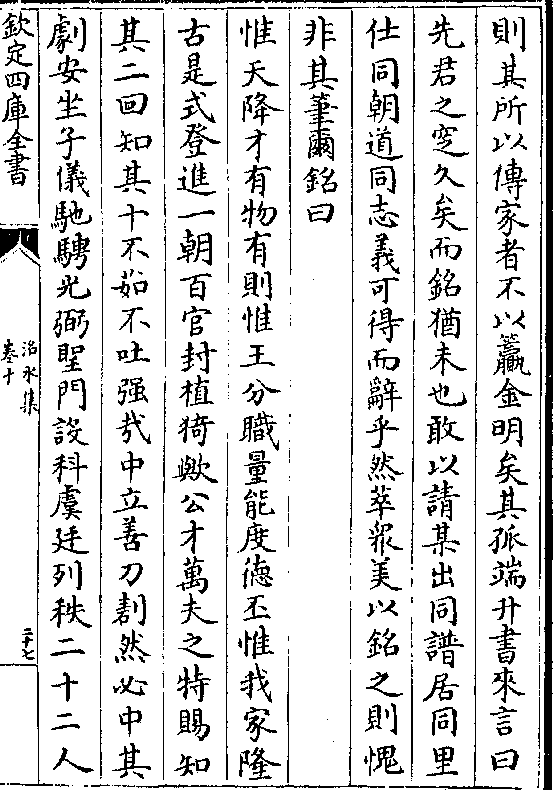 則其所以傳家者不以籯金明矣其孤端升書來言曰
先君之窆久矣而銘猶未也敢以請某出同譜居同里
仕同朝道同志義可得而辭乎然萃衆美以銘之則愧
非其筆爾銘曰
惟天降才有物有則惟王分職量能度德丕惟我家隆
古是式登進一朝百官封植猗歟公才萬夫之特賜知
其二回知其十不茹不吐强㢤中立善刀剨然必中其
劇安坐子儀馳騁光弼聖門設科虞廷列秩二十二人
欽定四庫全書
洺水集
卷十
二十七